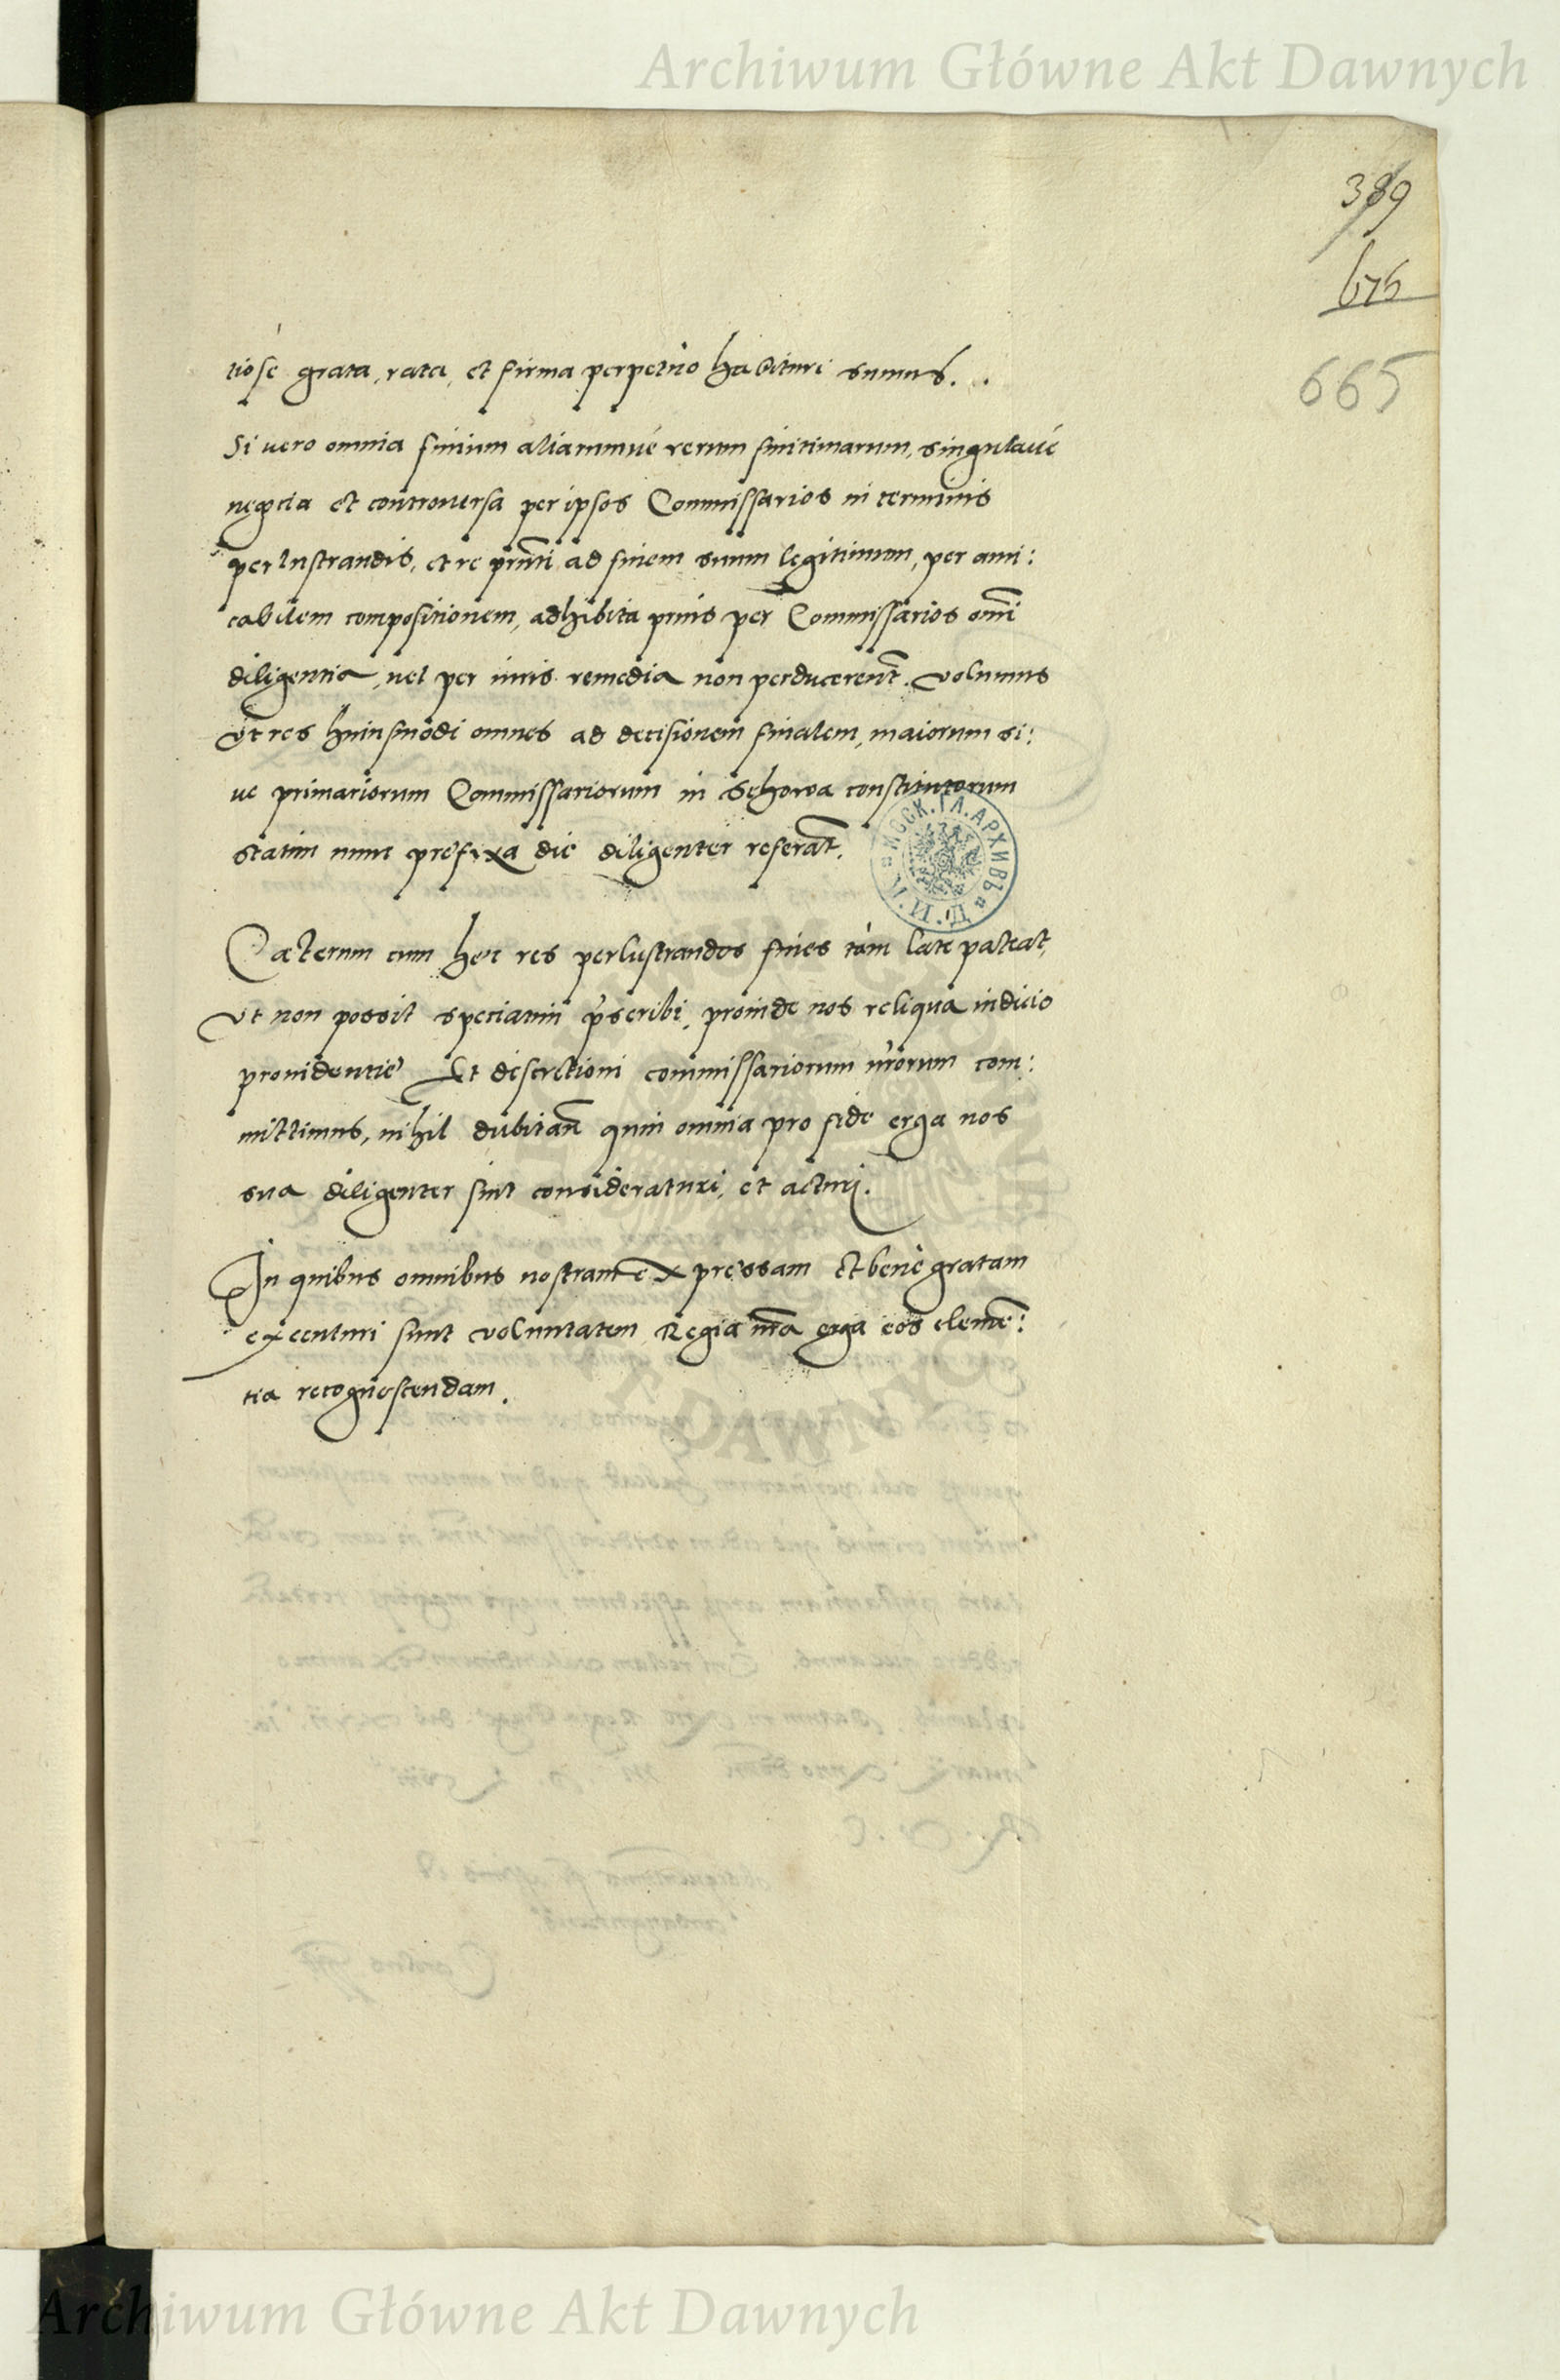 Archiwum Główne Akt Dawnych
389
675
665
tiose grata, rata, et firma perpetuo habituri sumus.
Si uero omnia finium aliarumue rerum finitimarum, singulaue
negocia et controuersa per ipsos Commissarios in terminis
perlustrandis, et re pñti ad finem suum legitimum, per ami:
cabilem compositionem, adhibita prius per Commissarios omi
diligentia, uel per iuris remedia non perducerent. volumus
vt res huiusmodi omnes ad decisionem finalem, maiorum si:
ue primariorum Commissariorum in constitutorum
statim nunc prefixa die diligenter referat.
Cæterum cum hec res perlustrandos fines tam late pateat,
vt non possit speciatim pscribi, proinde nos reliqua iudicio
prouidentie Et discretioni commissariorum nrorum com:
mittimus, nihil dubitan quin omnia pro fide erga nos
sua diligenter sint consideraturi, et acturi.
In quibus omnibus nostram expressam Et bene gratam
executuri sunt voluntatem Regia nra erga eos clemē:
tia recognoscendam.
МОСК. ГЛ. АРХИВЪ М. И. Д.
Archiwum Główne Akt Dawnych